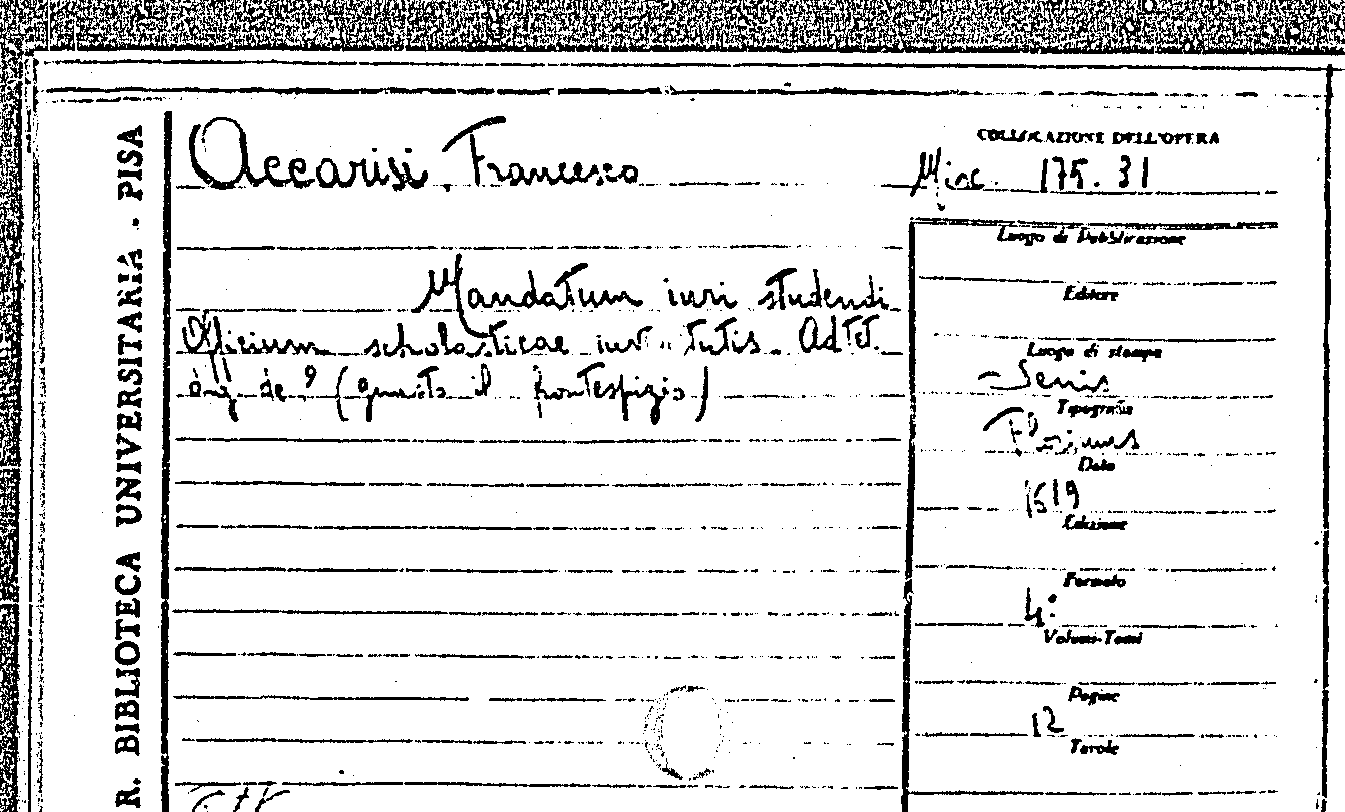 R. BIBLIOTECA UNIVERSITARIA - PISA
Accarisi, Francesco
Mandatum iuri studendi
Officium scholasticae iuv tutis. Ad tet.
de (guasto il frontespizio)
COLLOCAZIONE DELL'OPERA
Misc. 175. 31
Luogo di Pubblicazione
Editore
Luogo di stampa
Senis
Tipografia
Data
1619
Edizione
Formato
4°
Volumi-Tomi
Pagine
12
Tavole